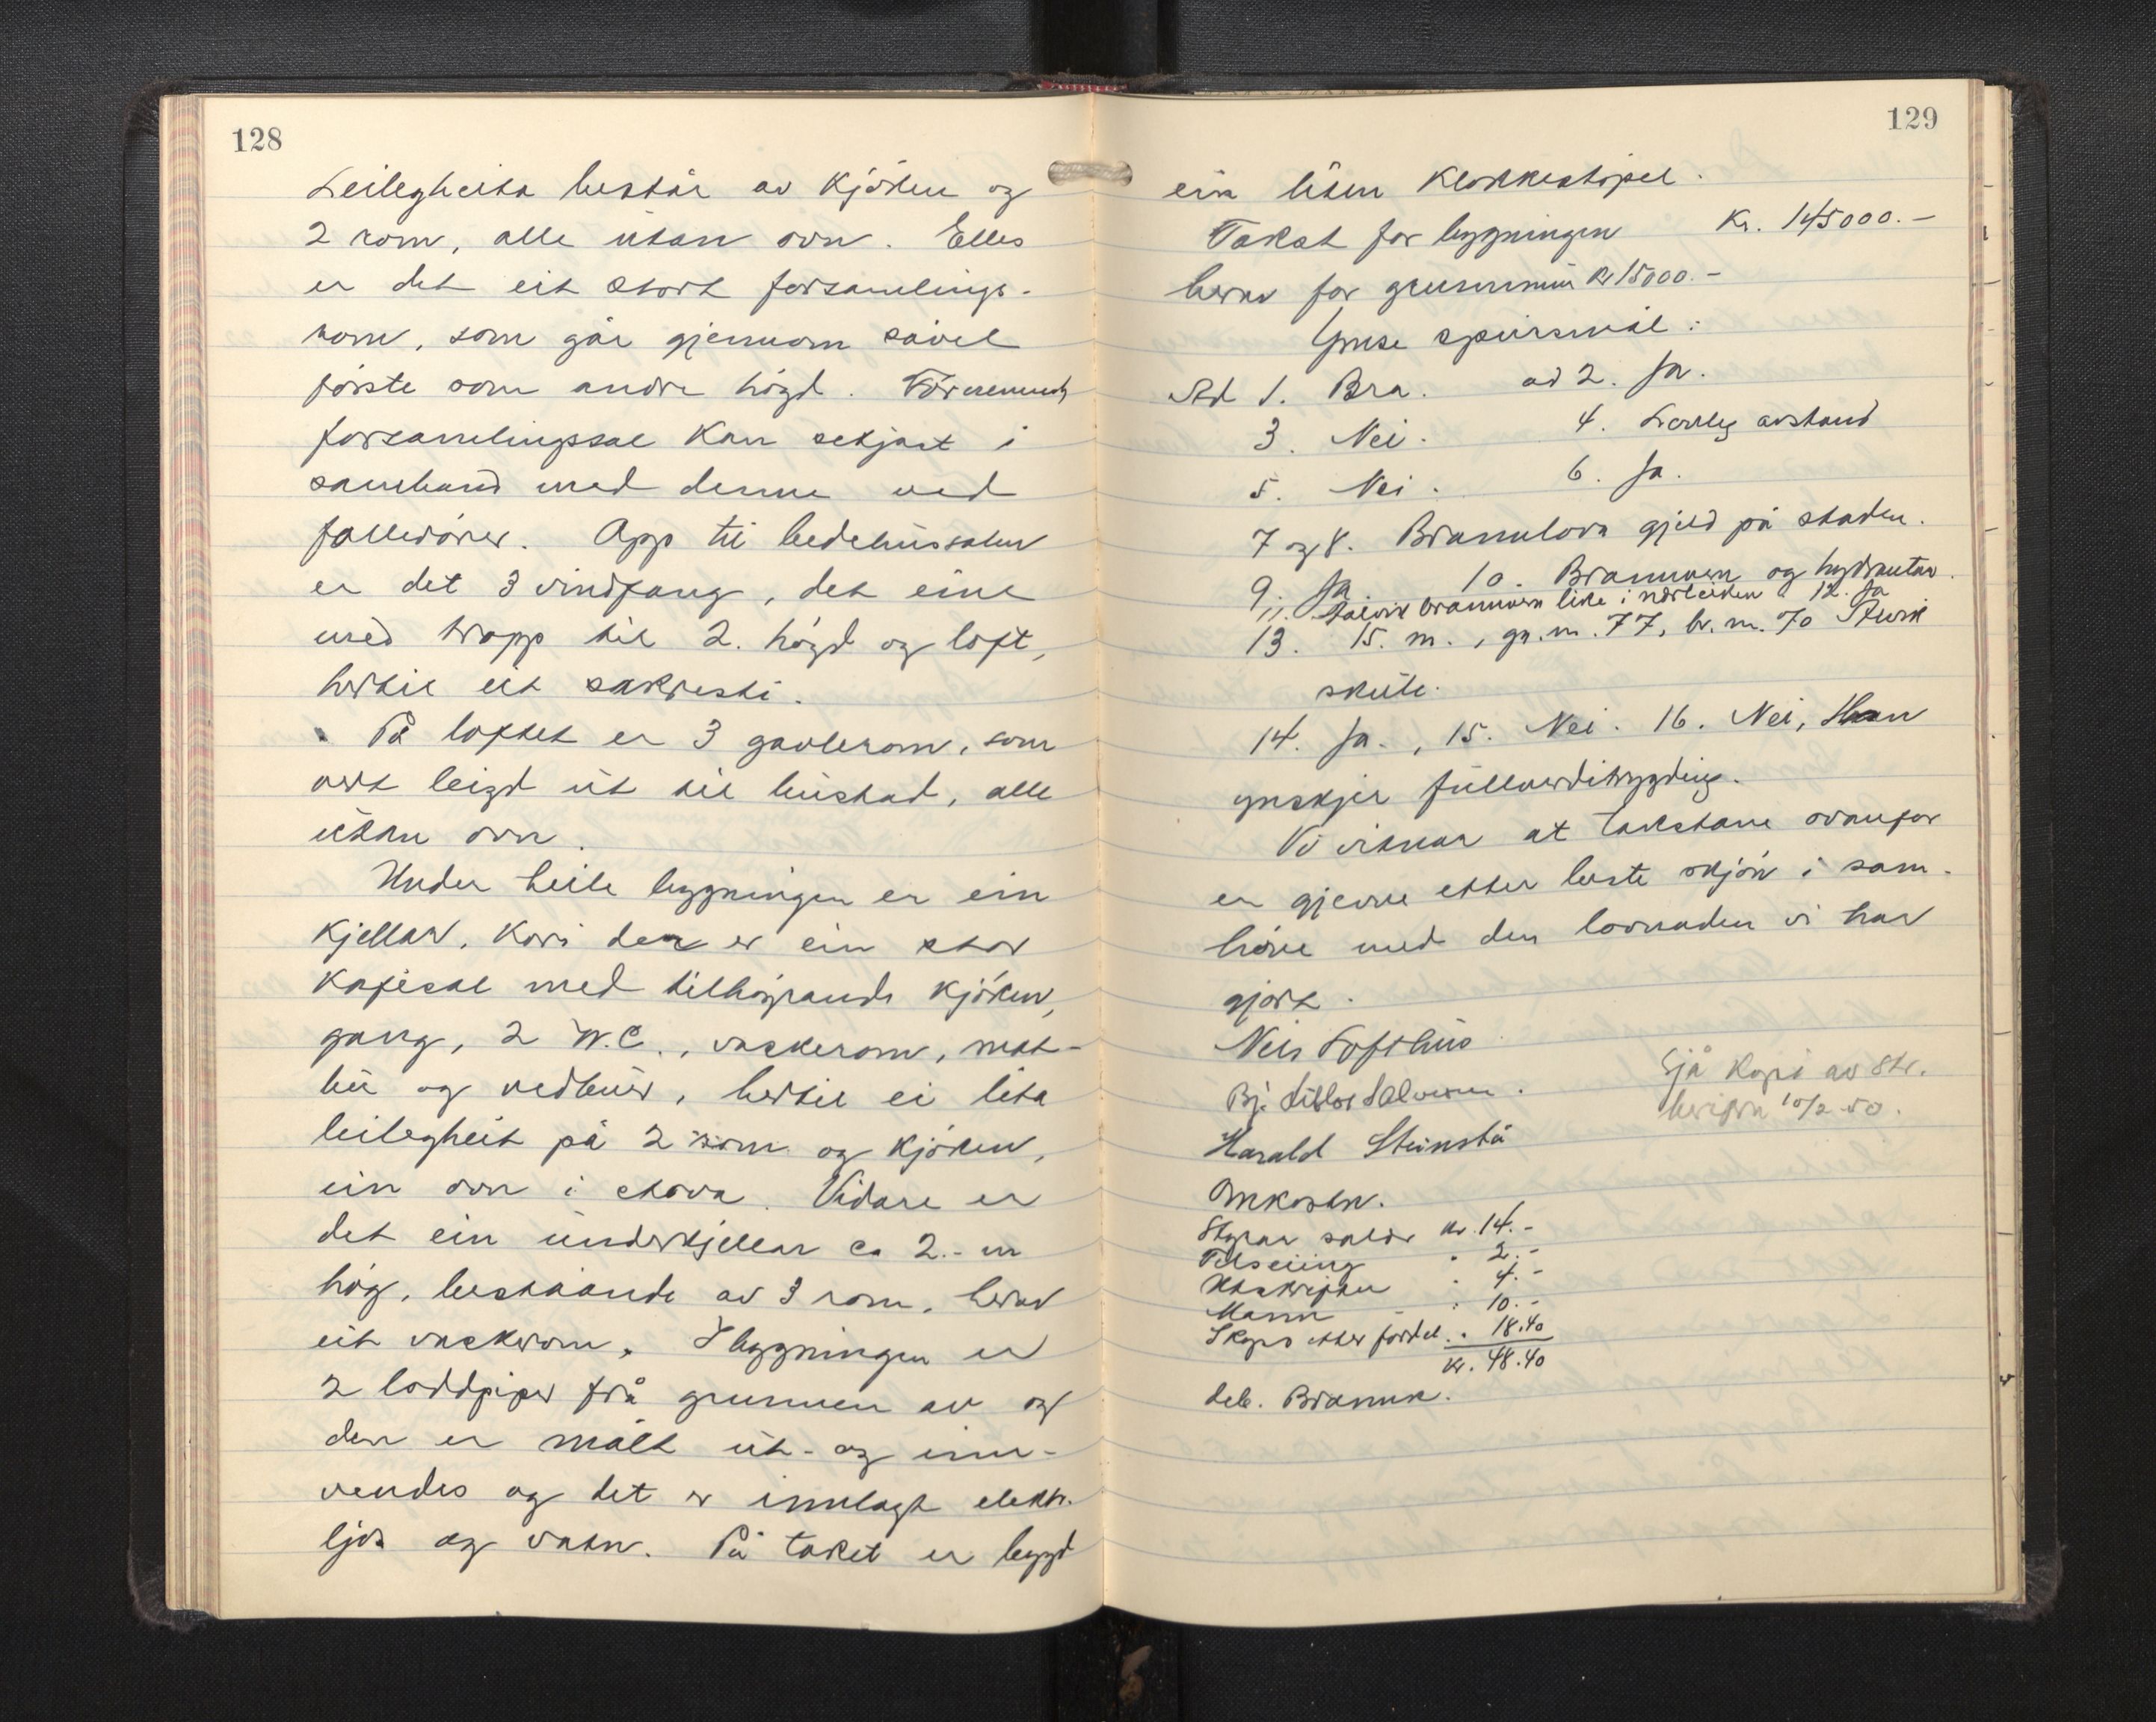 128
Leilegheita består av kjöken og
2 rom, alle utan ovn. Elles
er det eit stort forsamlings-
rom, som går gjennom såvel
förste som andre högd. Fornemnde
forsamlingssal kan setjast i
samband med denne ved
falledörer. Opp til bedehussalen
er det 3 vindfang, det eine
med trapp til 2. högd og loft,
hertil eit sakresti.
På loftet er 3 gavlerom, som
vert leigd ut til bustad, alle
utan ovn.
Under heile bygningen er ein
kjellar, kori der er ein stor
kafésal med tilhöyrande kjöken,
gang, 2 W.C., vaskerom, mat-
bu og vedbuer, hertil ei lita
leilegheit på 2 rom og kjöken,
ein ovn i stova. Vidare er
det ein underkjellar ca 2.- m
hög, beståande av 3 rom, herav
eit vaskerom. I bygningen er
2 loddpiper frå grunnen av og
den er målt ut- og inn-
vendes og det er innlagt elektr.
ljos og vatn. På taket er bygd
129
ein liten klokkestopel.
Takst for bygningen Kr. 145000.-
herav for grunnmur kr 15000.-
Ymse spursmål:
Ad 1. Bra. ad 2. Ja.
3. Nei. 4. Lovleg avstand
5. Nei. 6. Ja.
7 og 8. Brannlova gjeld på staden.
9. Ja 10. Brannvern og hydrantar.
11. brannvern like i närleiken 12. Ja
13. 15. m., gn. m. 77, br. m. 70
skule.
14. Ja., 15. Nei. 16. Nei, Han
ynskjer fullverditrygding.
Vi vitnar at takstane ovanfor
er gjevne etter beste skjön i sam-
höve med den lovnaden vi har
gjort.
Nils Lofthus
Bj. Salvesen.
Harald Steinstö
Sjå kopi av Str.
10/2-50.
Omkostn.
Styrar kr. 14.-
Telseiing " 2.-
Utskrifter " 4.-
Mann " 10.-
Skyss etter fordel. " 18.40
kr. 48.40
deb. Brannk.